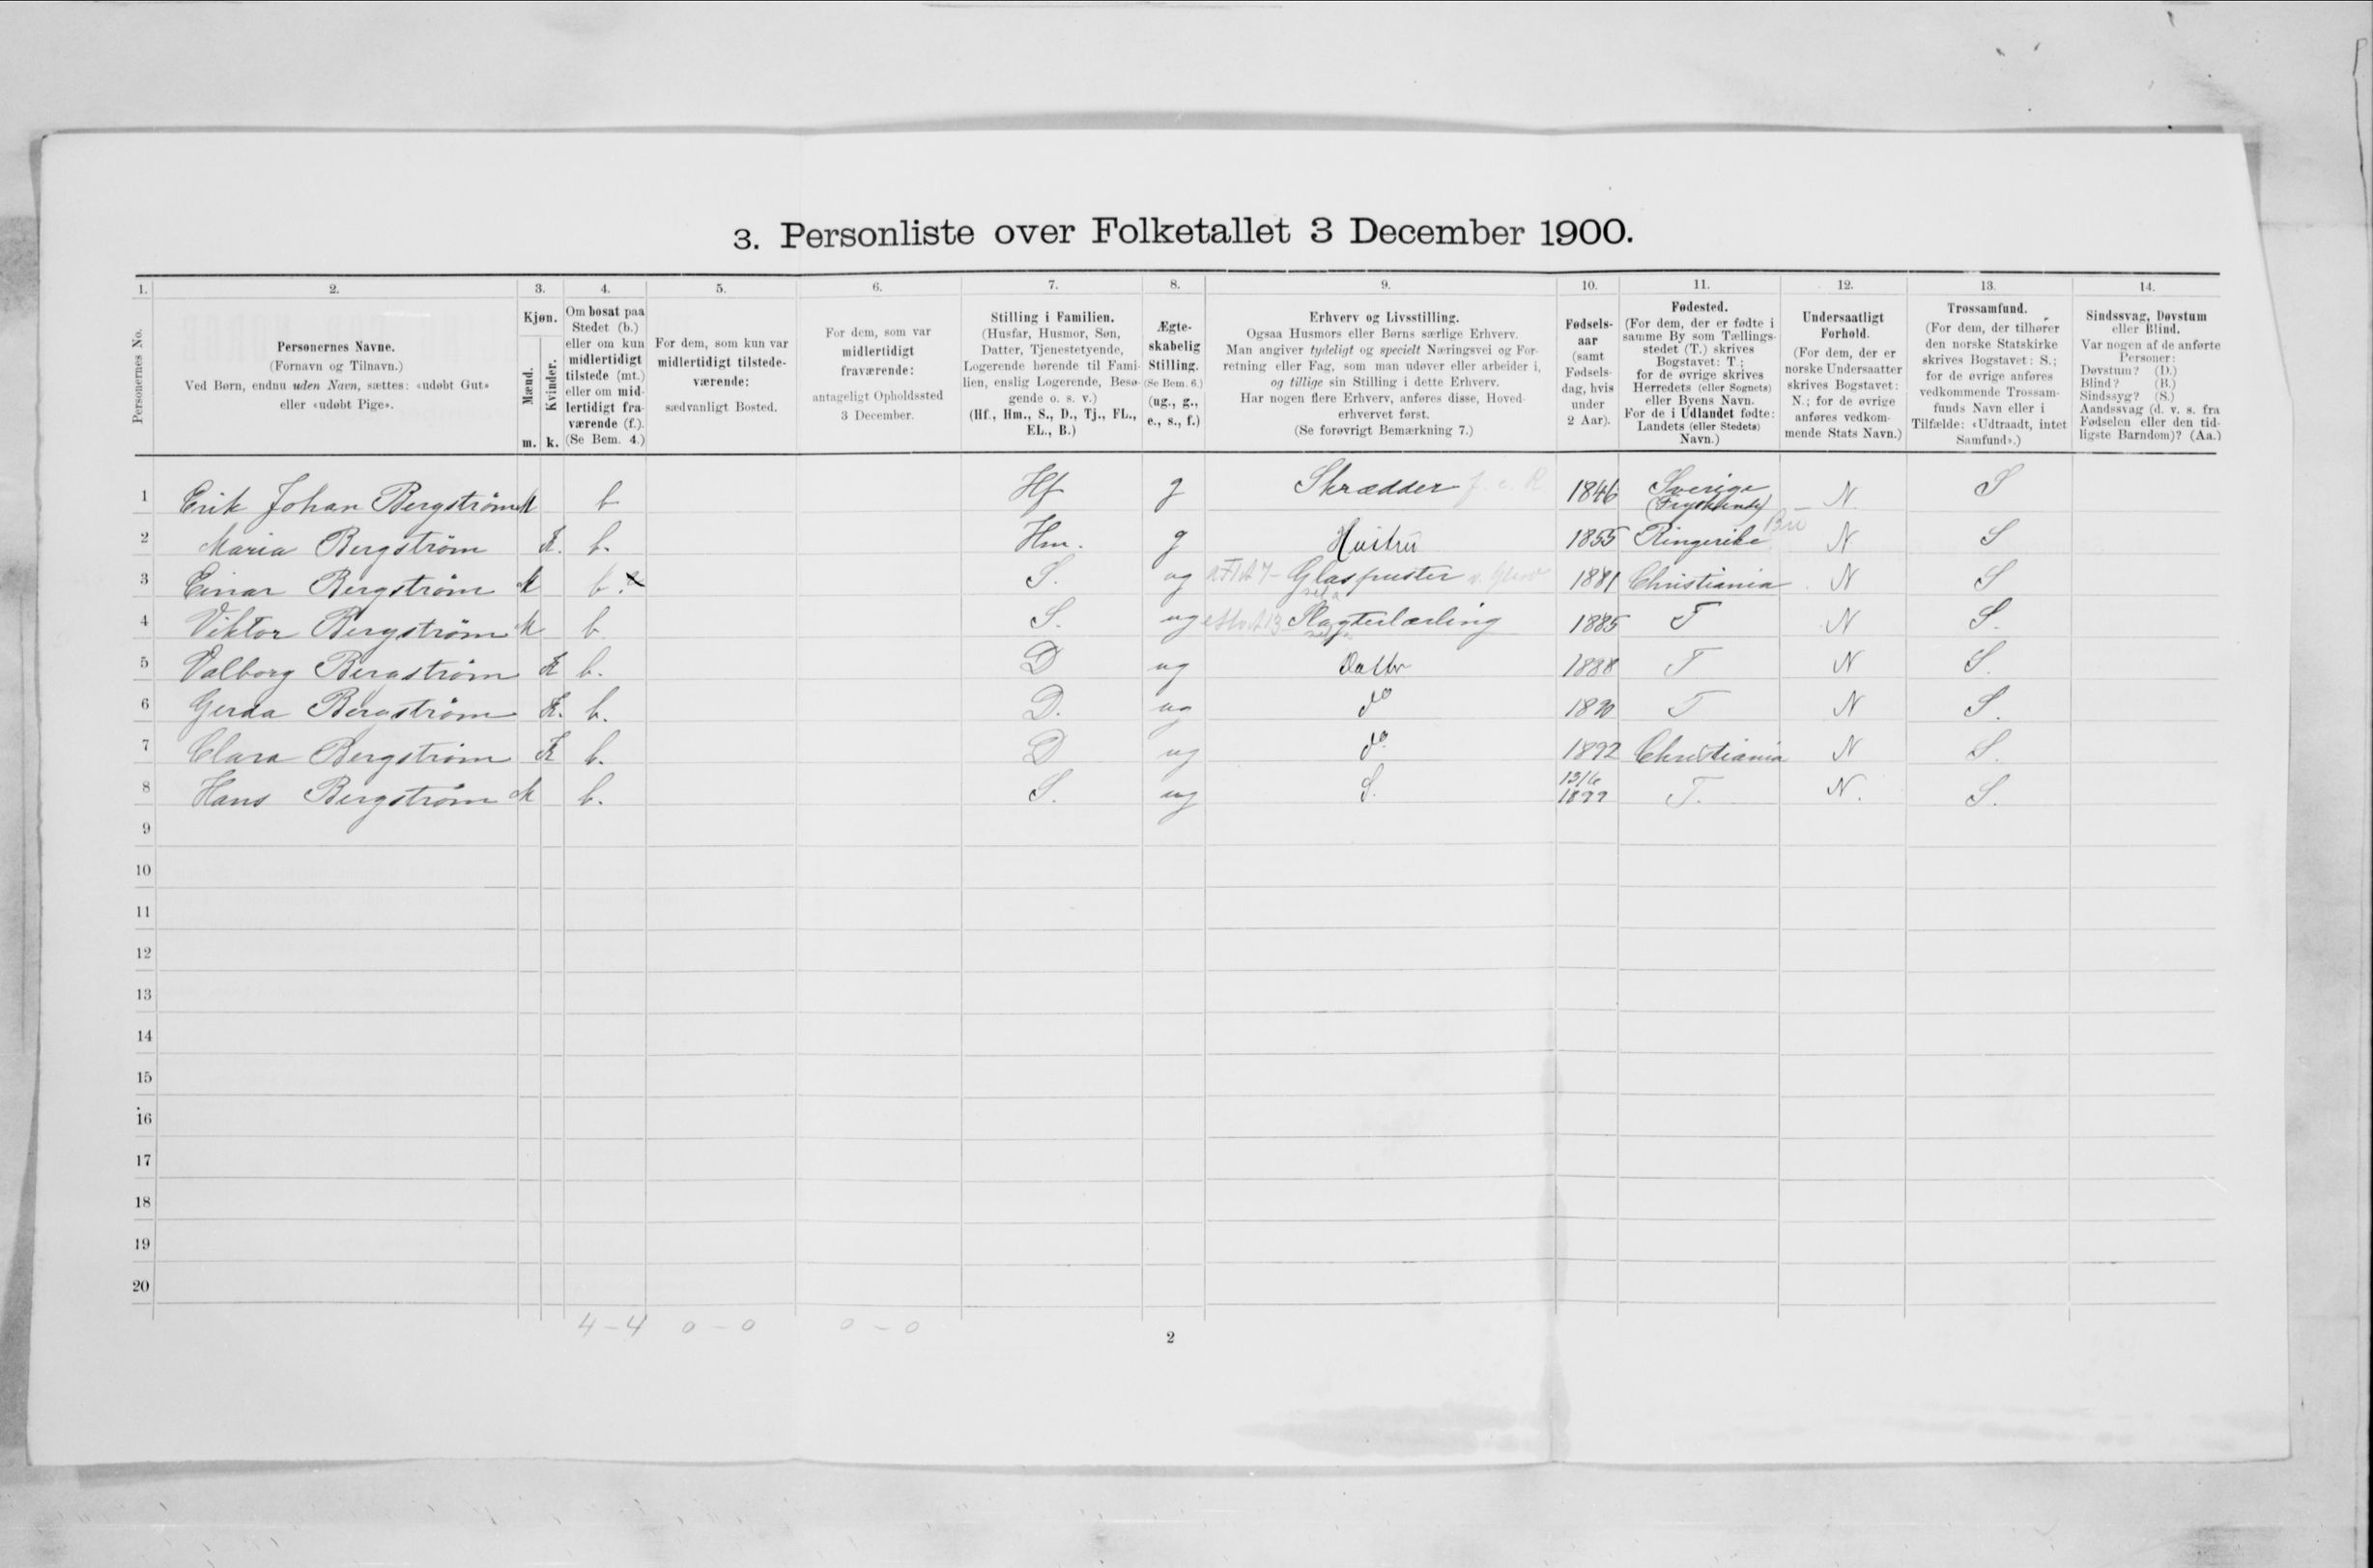 3. Personliste over Folketallet 3 December 1900.
1. 2. 3. 4. 5. 6. 7. 8. 9. 10. 11. 12. 13. 14.
Personernes No.
Personernes Navne.
(Fornavn og Tilnavn.)
Ved Børn, endnu uden Navn, sættes: «udøbt Gut»
eller «udøbt Pige».
Kjøn.
Mænd.
Kvinder.
m. k.
Om bosat paa
Stedet (b.)
eller om kun
midlertidigt
tilstede (mt.)
eller om mid-
lertidigt fra-
værende (f.).
(Se Bem. 4.)
For dem, som kun var
midlertidigt tilstede-
værende:
sædvanligt Bosted.
For dem, som var
midlertidigt
fraværende:
antageligt Opholdssted
3 December.
Stilling i Familien.
(Husfar, Husmor, Søn,
Datter, Tjenestetyende,
Logerende hørende til Fami-
lien, enslig Logerende, Besø-
gende o. s. v.)
(Hf., Hm., S., D., Tj., FL.,
EL., B.)
Ægte-
skabelig
Stilling.
(Se Bem. 6.)
(ug., g.,
e., s., f.)
Erhverv og Livsstilling.
Ogsaa Husmors eller Børns særlige Erhverv.
Man angiver tydeligt og specielt Næringsvei og For-
retning eller Fag, som man udøver eller arbeider i,
og tillige sin Stilling i dette Erhverv.
Har nogen flere Erhverv, anføres disse, Hoved-
erhvervet først.
(Se forøvrigt Bemærkning 7.)
Fødsels-
aar
(samt
Fødsels-
dag, hvis
under
2 Aar).
Fødested.
(For dem, der er fødte i
samme By som Tællings-
stedet (T.) skrives
Bogstavet: T.;
for de øvrige skrives
Herredets (eller Sognets)
eller Byens Navn.
For de i Udlandet fødte:
Landets (eller Stedets)
Navn.)
Undersaatligt
Forhold.
(For dem, der er
norske Undersaatter
skrives Bogstavet:
N.; for de øvrige
anføres vedkom-
mende Stats Navn.)
Trossamfund.
(For dem, der tilhører
den norske Statskirke
skrives Bogstavet: S.;
for de øvrige anføres
vedkommende Trossam-
funds Navn eller i
Tilfælde: «Udtraadt, intet
Samfund».)
Sindssvag, Døvstum
eller Blind.
Var nogen af de anførte
Personer:
Døvstum? (D.)
Blind? (B.)
Sindssyg? (S.)
Aandssvag (d. v. s. fra
Fødselen eller den tid-
ligste Barndom)? (Aa.)
1 Erik Johan Bergström M b Hf g Skrædder 1846 Sverige N. S
2 Maria Bergström K. b. Hm. g Hustru 1855 Ringerike N S
3 Einar Bergström M b. S. ug Glaspuster 1881 Christiania N S
4 Viktor Bergström M b S. ug Slagterlærling 1885 T N S.
5 Valborg Bergström K b. D ug Datter 1888 T N S.
6 Gerda Bergström K. b. D. ug do 1890 T N S.
7 Clara Bergström K b. D ug do 1892 Christiania N S.
8 Hans Bergström M b. S. ug S. 13/6 1899 T. N. S.
9
10
11
12
13
14
15
16
17
18
19
20
4-4 0-0 0-0
2